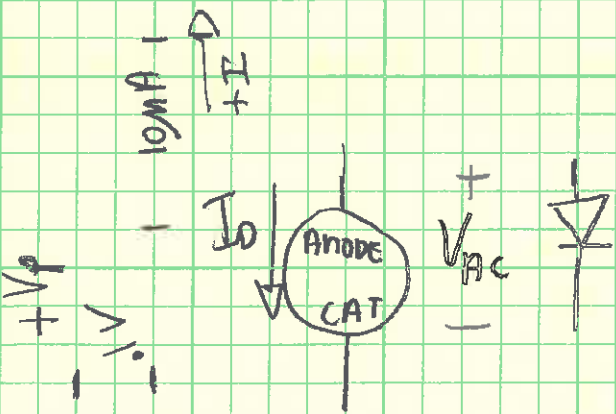 10mA
+I
I_D
ANODE
CAT
+
V_AC
−